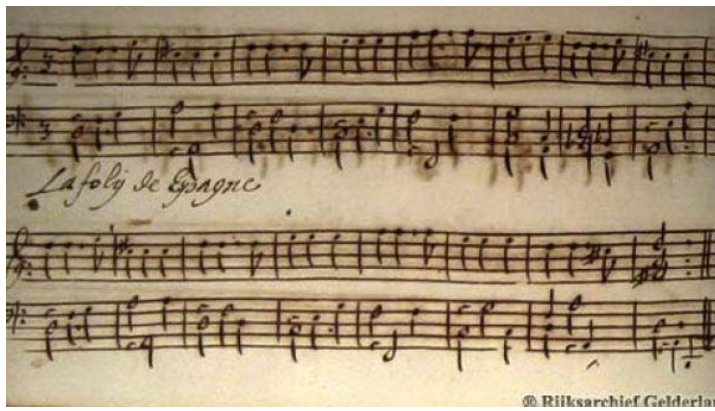 La folij de Epagne
® Rijksarchief Gelderlan